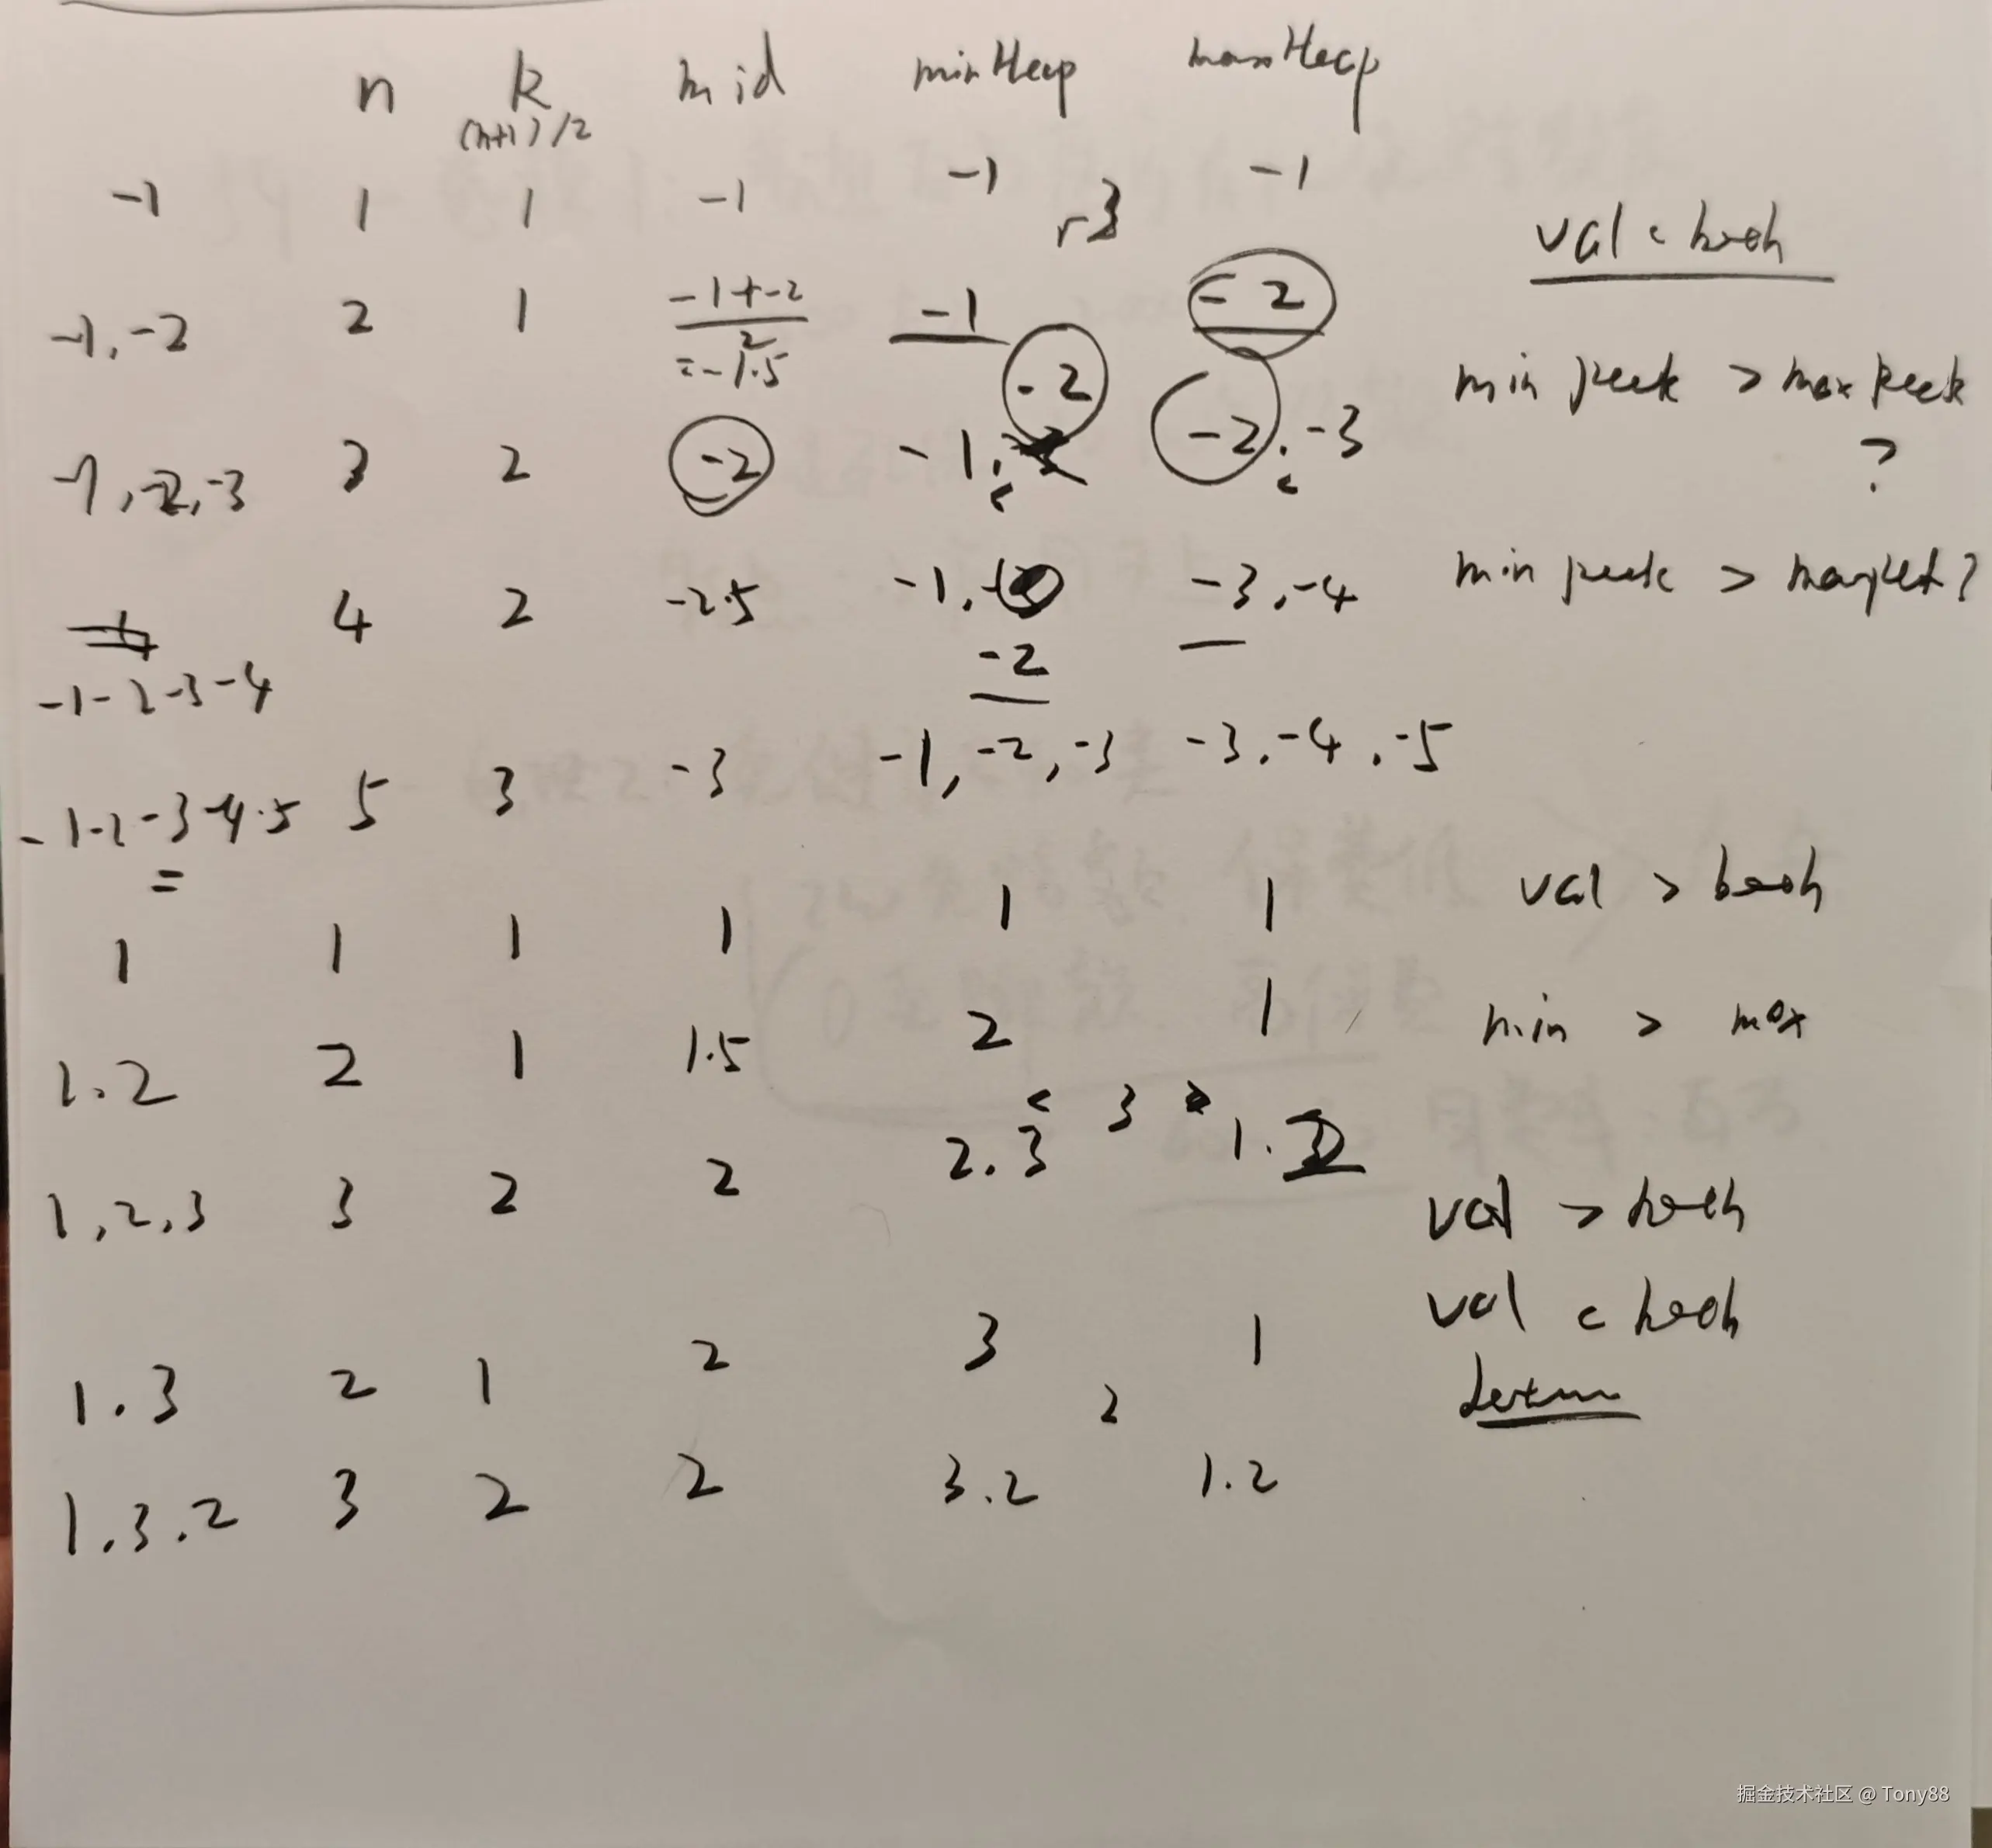 n k mid minHeap maxHeap
(n+1)/2
-1 1 1 -1 -1 -1
r3
val < both
-1, -2 2 1 -1+-2 -1 -2
2
=-1.5
-2
min peek > max peek
?
-1, -2, -3 3 2 -2 -1, -2, -3
4 2 -2.5 -1, -3, -4 min peek > maxpeek?
-2
-1-2-3-4
-1-2-3-4-5 5 3 -3 -1, -2, -3 -3, -4, -5
=
val > both
1 1 1 1 1 1
1.2 2 1 1.5 2 1 min > max
< 3 >
1,2,3 3 2 2 2.3 1.2
val > both
val < both
1.3 2 1 2 3 1
2
1.3.2 3 2 2 3.2 1.2
掘金技术社区 @ Tony88